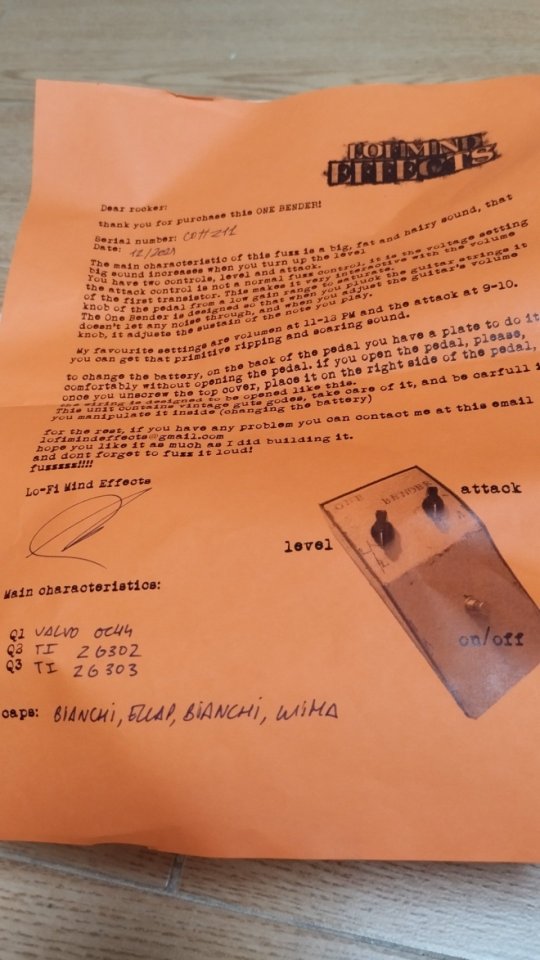 LOFIMIND
EFFECTS
Dear rocker:
thank you for purchase this ONE BENDER!
Serial number:
Date: 12/2021
The main characteristic of this fuzz is a big, fat and hairy sound, that
big sound increases when you turn up the level
You have two controls, level and attack.
the attack control is not a normal fuzz control, it is the voltage setting
of the first transistor. This makes it very interactive with the volume
knob of the pedal from a low gain range to saturate.
The One Bender is designed so that when you pluck the guitar strings it
doesn't let any noise through, and when you adjust the guitar's volume
knob, it adjusts the sustain of the note you play.
My favourite settings are volumen at 11-13 PM and the attack at 9-10.
you can get that primitive ripping and soaring sound.
to change the battery, on the back of the pedal you have a plate to do it
comfortably without opening the pedal. if you open the pedal, please,
once you unscrew the top cover, place it on the right side of the pedal,
the wiring is designed to be opened like this.
This unit contains vintage guts godes, take care of it, and be carfull i
you manipulate it inside (changing the battery)
for the rest, if you have any problem you can contact me at this email
lofimindeffects@gmail.com
hope you like it as much as I did building it.
and dont forget to fuzz it loud!
fuzzzzz!!!!
Lo-Fi Mind Effects
ONE BENDER
attack
level
on/off
Main characteristics:
Q1 VALVO OC44
Q2 TI 2G302
Q3 TI 2G303
caps: BIANCHI, BIANCHI, WIMA